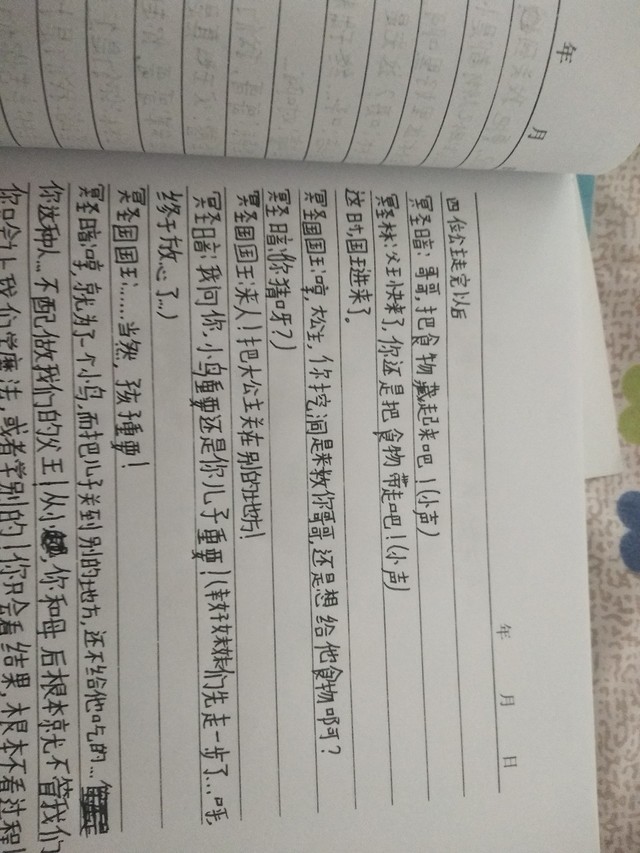 年 月
年 月 日
四位公主走完以后
冥圣暗:哥哥,把食物藏起来吧!(小声)
冥圣林:父王快来了,你还是把食物带走吧!(小声)
这时,国王进来了。
冥圣国国王:哼,大公主,你挖洞是来救你哥哥,还是想给他食物啊?
冥圣暗:你猜呀?)
冥圣国国王:来人!把大公主关在别的地方!
冥圣暗:我问你,小鸟重要还是你儿子重要!(幸好妹妹们先走一步了…呼
终于放心了…)
冥圣国国王:……当然,孩子重要!
冥圣暗:哼,就为了一个小鸟,而把儿子关到别的地方,还不给他吃的…
你这种人…不配做我们的父王!从小,你和母后根本就不管我们
你只会让我们学魔法,或者学别的!你只会看结果,根本不看过程!